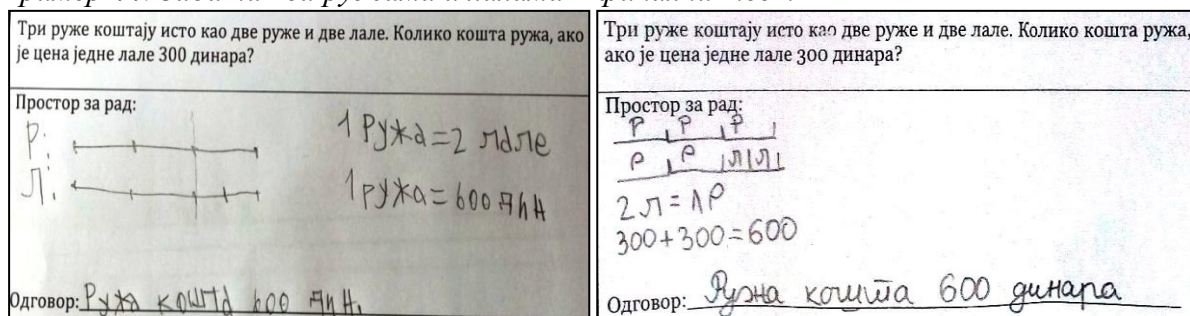 Три руже коштају исто као две руже и две лале. Колико кошта ружа, ако
је цена једне лале 300 динара?
Простор за рад:
Р:
Л:
1 Ружа=2 лале
1 ружа=600 дин
Одговор: Ружа кошта 600 дин.
Три руже коштају исто као две руже и две лале. Колико кошта ружа,
ако је цена једне лале 300 динара?
Простор за рад:
Р Р Р
Р Р Л Л
2 Л = 1 Р
300+300=600
Одговор: Ружа кошта 600 динара